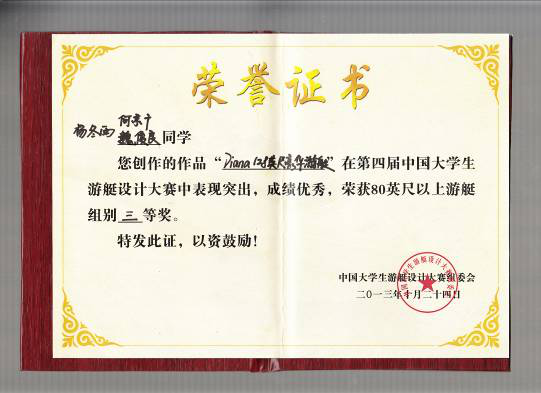 荣誉证书
杨冬雨 何京
同学
您创作的作品“Diana 128英尺豪华游艇”在第四届中国大学生
游艇设计大赛中表现突出，成绩优秀，荣获80英尺以上游艇
组别三等奖。
特发此证，以资鼓励！
中国大学生游艇设计大赛组委会
二〇一三年十月二十四日